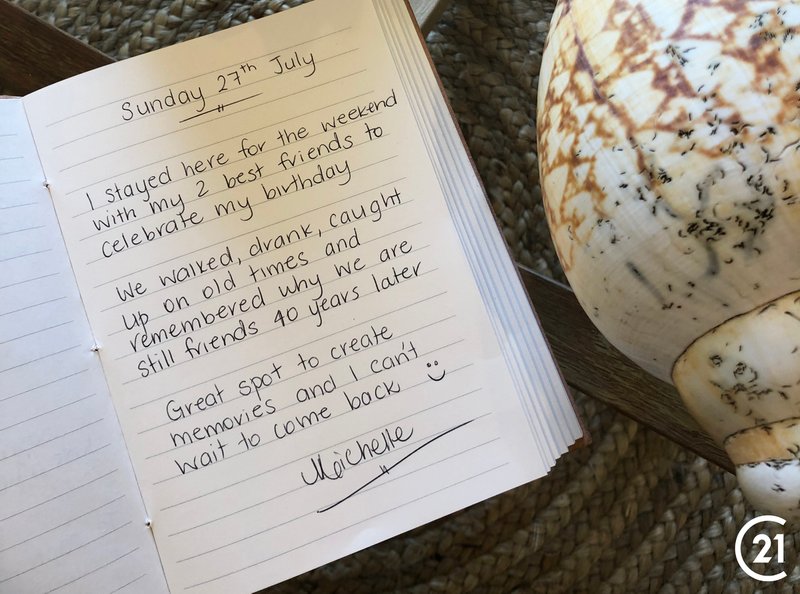 Sunday 27th July
I stayed here for the weekend
with my 2 best friends to
celebrate my birthday
We walked, drank, caught
up on old times and
remembered why we are
still friends 40 years later
Great spot to create
memories and I can't
wait to come back
Michelle
C21